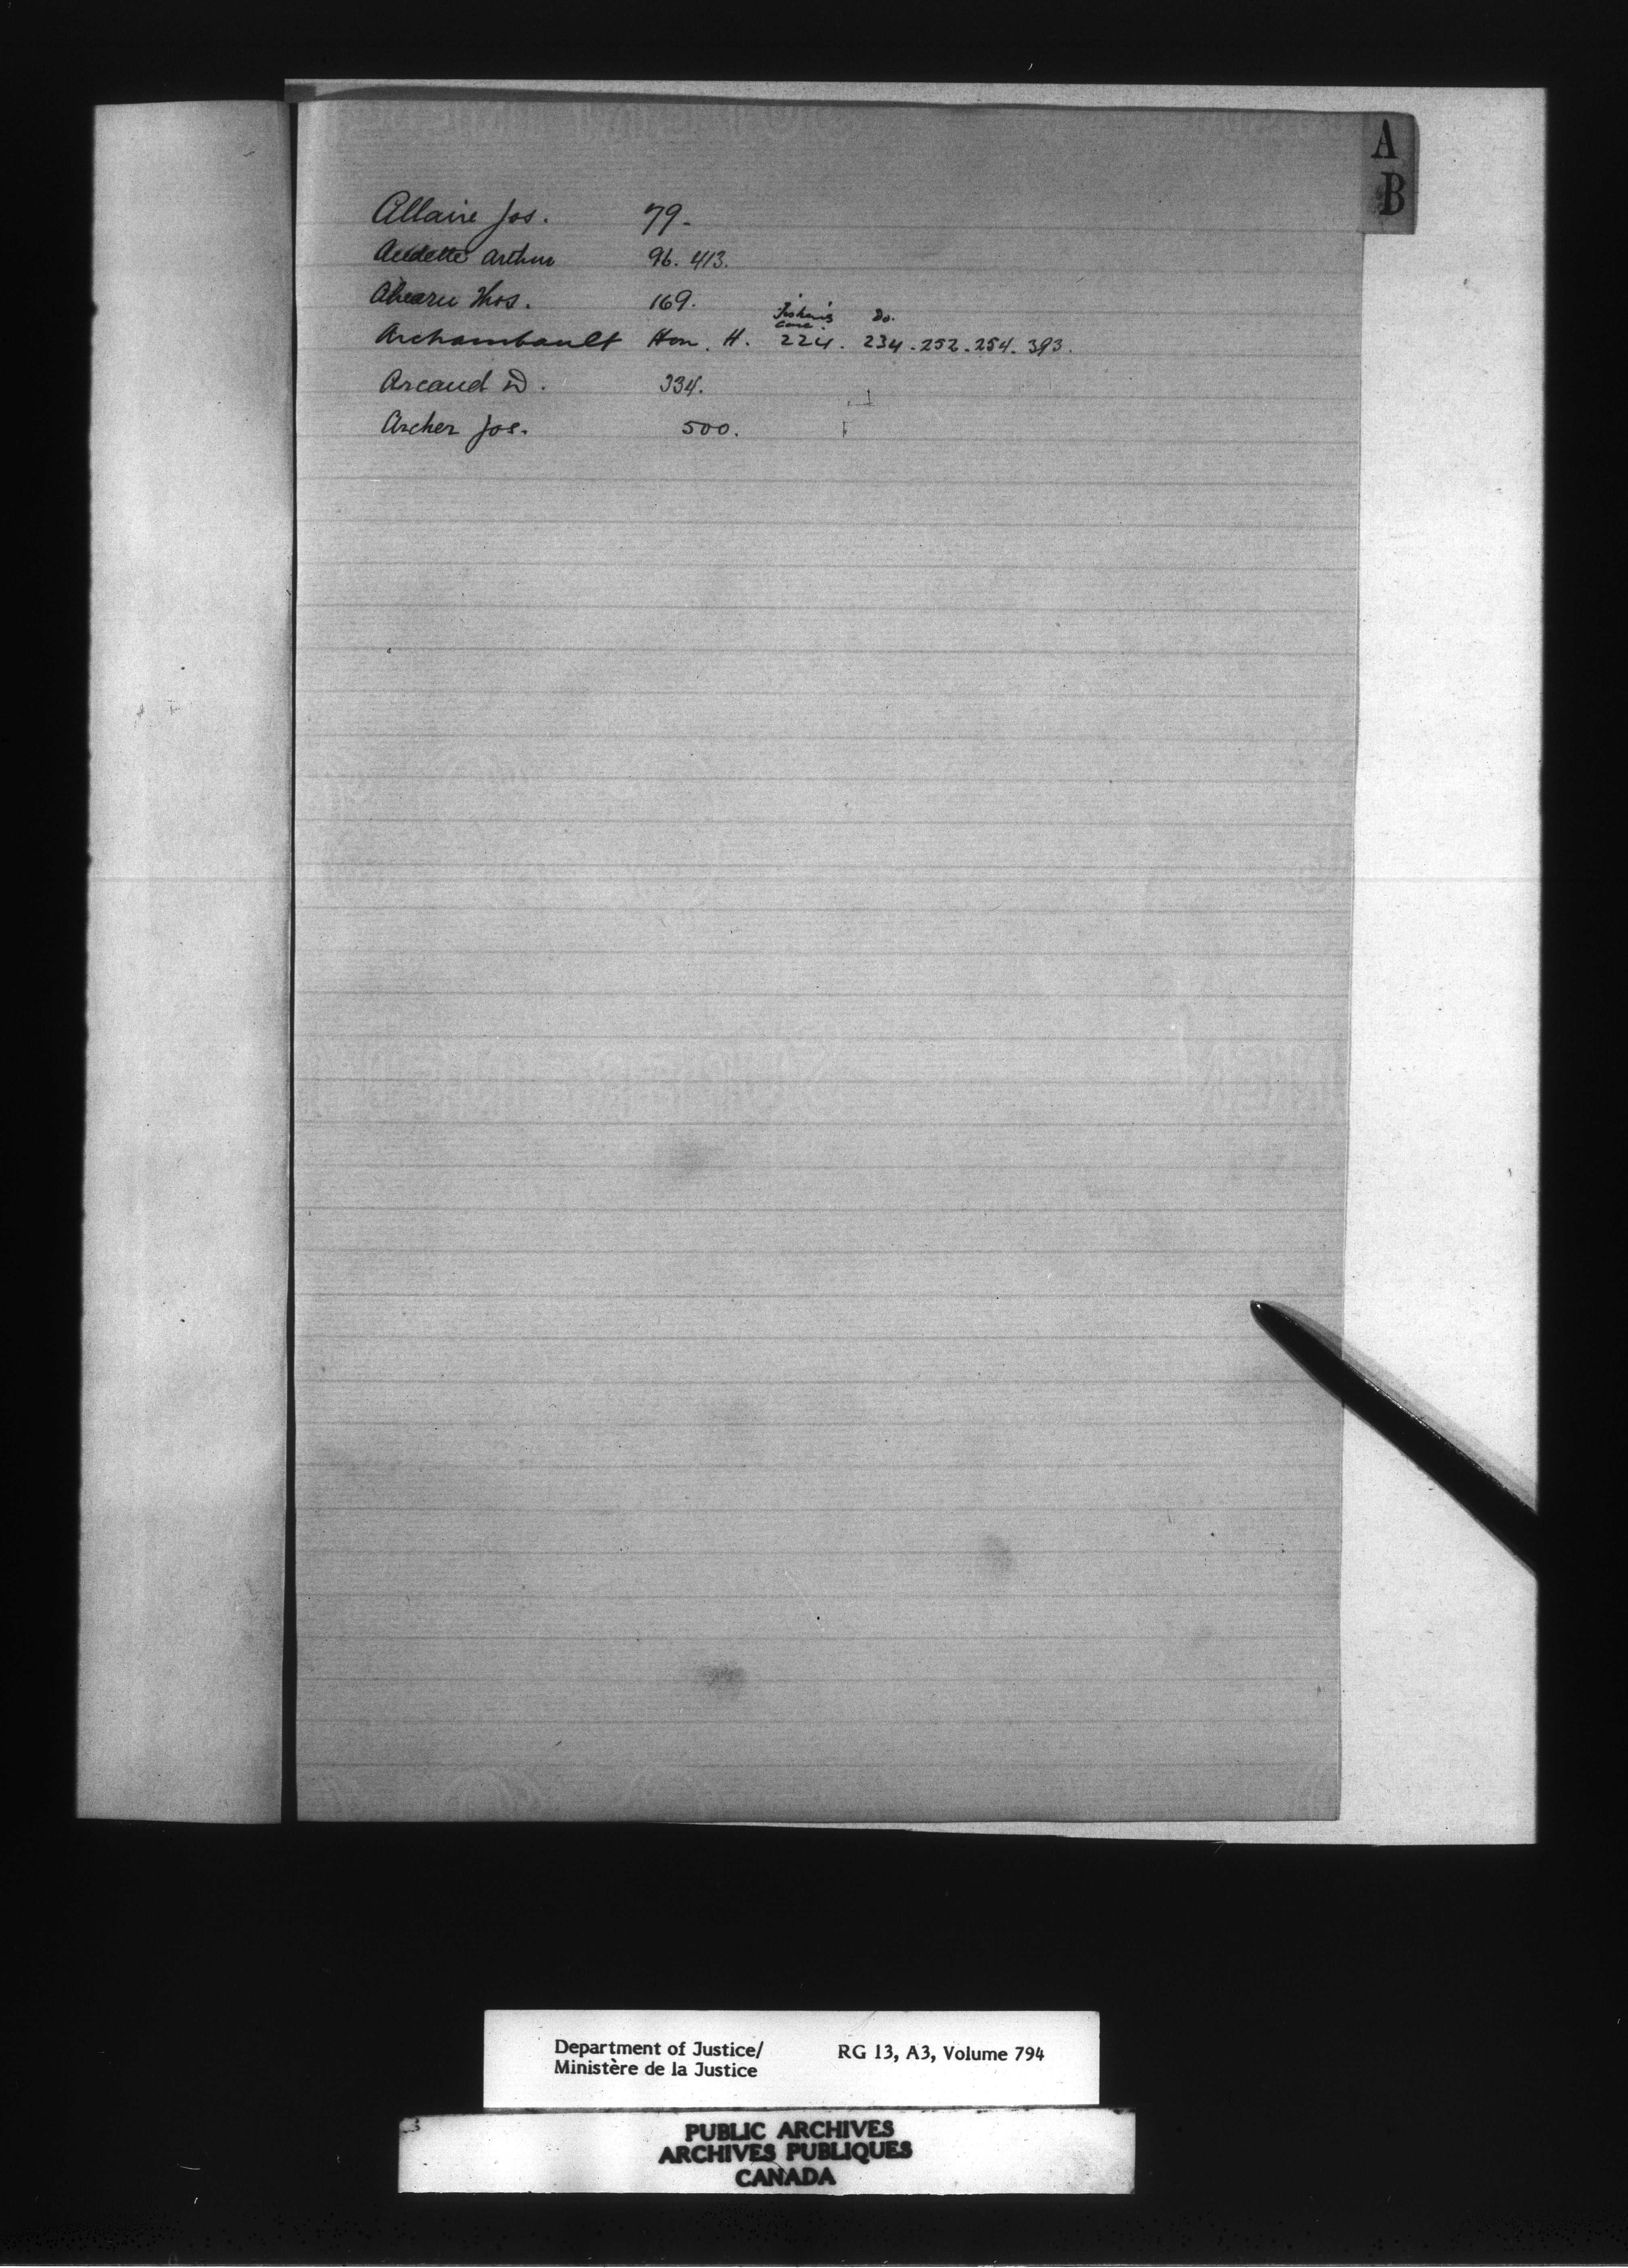 A
B
Allaire Jos. 79.
Audette Arthur 96. 413.
Ahearn Thos. 169.
Fisheries Do.
Case.
Archambault Hon. H. 224. 234. 252. 254. 393.
Arcand D. 334.
Archer Jos. 500.
Department of Justice/ RG 13, A3, Volume 794
Ministère de la Justice
PUBLIC ARCHIVES
ARCHIVES PUBLIQUES
CANADA